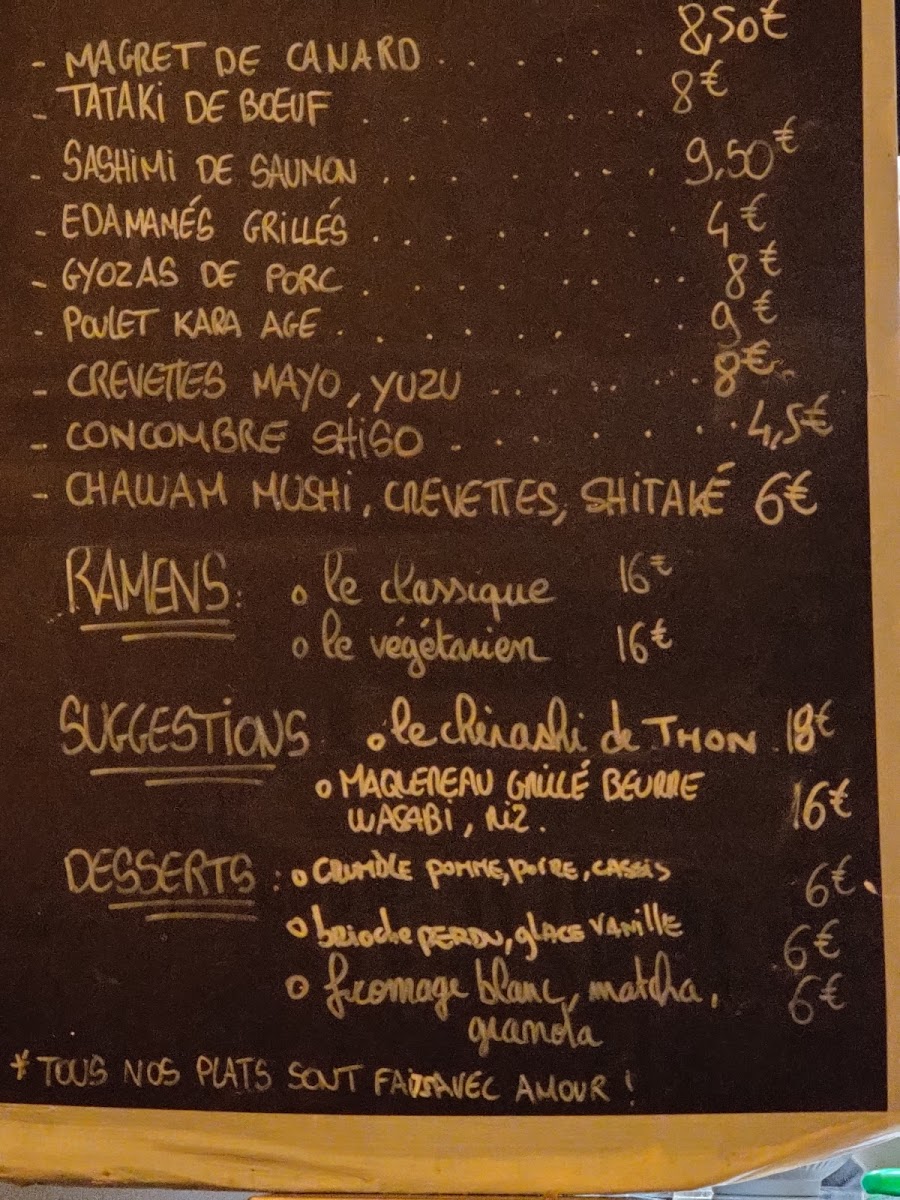 - MAGRET DE CANARD . . . . . . 8,50€
- TATAKI DE BŒUF . . . . . . . . 8€
- SASHIMI DE SAUMON . . . . . . . . 9,50€
- EDAMAMÉS GRILLÉS . . . . . . . . 4€
- GYOZAS DE PORC . . . . . . . . 8€
- POULET KARA AGE . . . . . . . . 9€
- CREVETTES MAYO, YUZU . . . . . . . 8€
- CONCOMBRE SHISO . . . . . . . . 4,5€
- CHAWAM MUSHI, CREVETTES, SHITAKÉ 6€
RAMENS: o le classique 16€
o le végétarien 16€
SUGGESTIONS o le chirashi de THON 18€
o MAQUEREAU GRILLÉ BEURRE
WASABI, RIZ. 16€
DESSERTS : o CRUMBLE POMME, POIRE, CASSIS 6€
o brioche PERDU, glace VANILLE 6€
o fromage blanc, matcha, 6€
granola
* TOUS NOS PLATS SONT FAITS AVEC AMOUR !